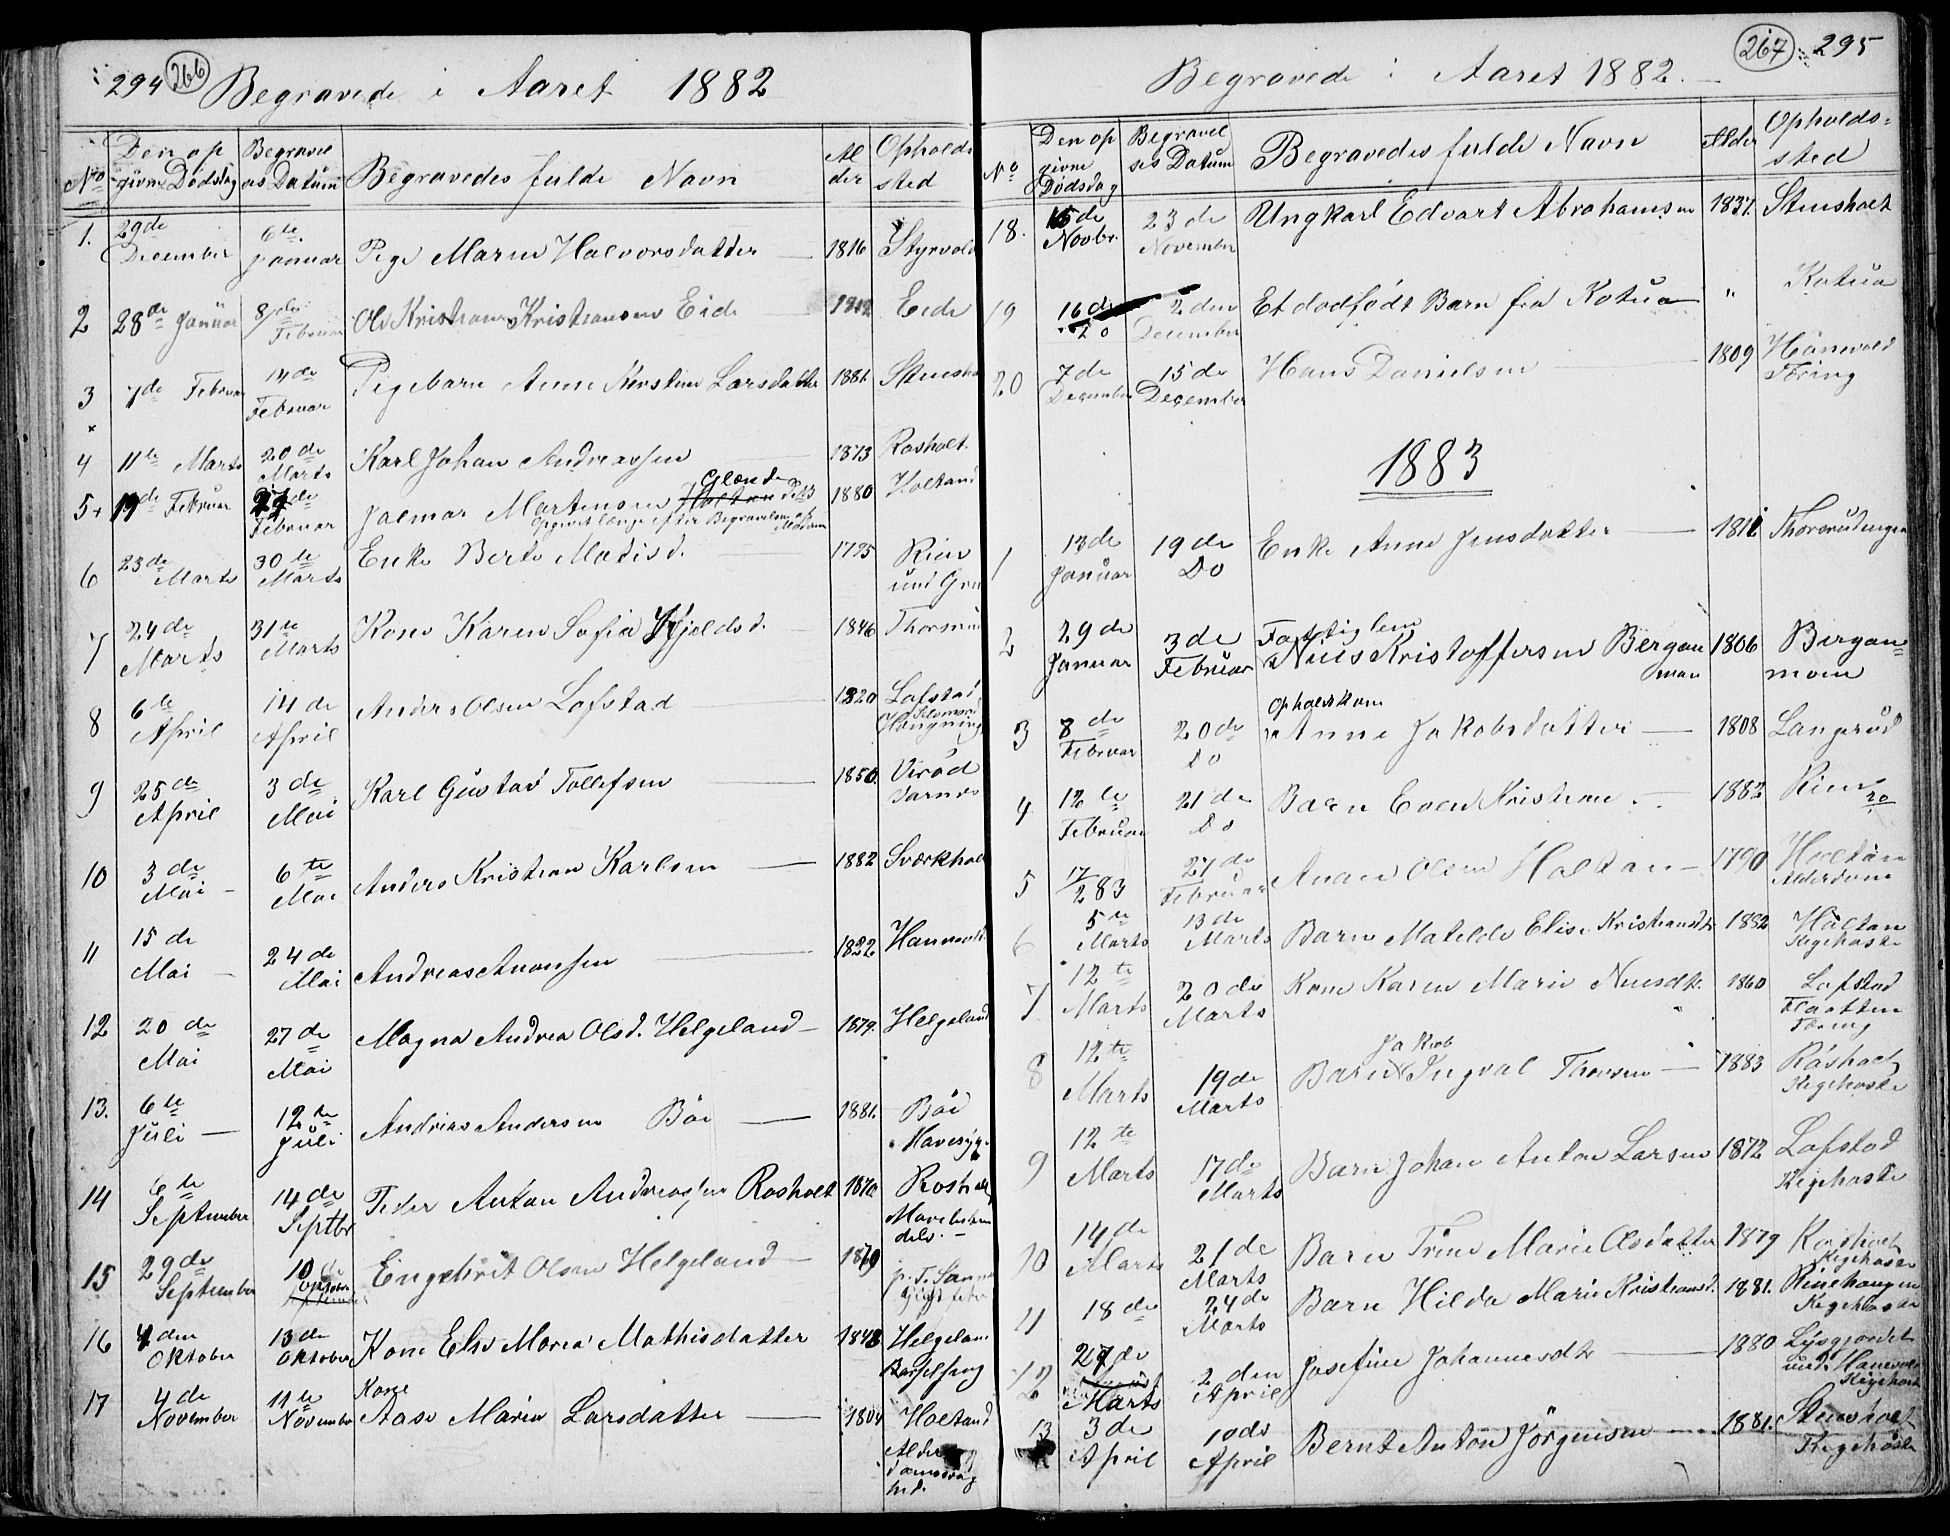 294 266 Begravede i Aaret 1882
No Den op givne Dødsdag Begravel ses Datum Begravedes fulde Navn Al der Opholds sted
1. 29de December 6te Januar Pige Maren Halvorsdatter — 1816 Styrvold
2 28de Januar 8de Februar Ole Kristian Kristiansen Eide Eide
3 7de Februar 14de Februar Pigebarn Anne Kirstine Larsdatter 1881. Stensho
4 11te Marts 20de Marts Karl Johan Andreassen 1873 Rosholt.
5 19de Februar 27de Februar Jalmar Martensen Holtan 1880 Holtand
opgivet længe efter Begravelsen af Moderen
6 23de Marts 30te Marts Enke Berte Madisd. 1795 Rien und Gru
7 24de Marts 31te Marts Kone Karen Sofia Kjeldsd. 1846 Thorsrud
8 6te April 14de April Anders Olsen Lofstad 1820 Lofstad
9 25de April 3de Mai Karl Gustav Tollefsen — 1850.
10 3de Mai 6te Mai Anders Kristian Karlsen — 1882 Sværkholt
11 15de Mai 24de Mai Andreas Aronssen — 1822 Hannevold
12 20de Mai 27de Mai Magna Andrea Olsd. Helgeland — 1879. Helgeland
13. 6te Juli — 12te Juli Andrias Andersen Böe — 1881. Böe
14 6te September 14de Septbr Peder Anton Andreassen Rosholt 1870 Rosholt
15 29de September 10de Oktober September Engebrit Olsen Helgeland — 1879 p. T. Sanne
16 4den Oktober 13de Oktober Kone Else Maria Mathisdatter 1848 Helgeland Barselseng
17 4de November 11te November Kone Aase Maria Larsdatter — 1804 Holtand Alderdomssvaghed.
267 295
Begravede i Aaret 1882. —
No Den op givne Dødsdag Begravel ses Datum Begravedes fulde Navn Alder Opholds= sted
18. 15de Novbr. 23de November Ungkarl Edvart Abrahamsen 1837. Stensholt
19 16de Do 2den December Et dødfødt Barn fra Kotua — " Kotua
20 7de December 15de December Hans Danielsen — 1809 Hanevold Tæring
1883
1 13de Januar 19de Do Enke Anne Jensdatter — 1811 Thorsrudengen
2 29de Januar 3de Februar Fattiglem Niels Kristoffersen Bergan moen 1806 Bergan= moen
3 8de Februar 20de Do Opholdskone Anne Jakobsdatter — 1808 Langrud
4 12te Februar 21de Do Barn Even Kristian. — 1882 Rien
5 17/2 83 27de Februar Anan Olsen Holtan — 1790 Holtan Alderdom
6 5te Marts 13de Marts Barn Matilde Elise Kristiansdtr 1882 Holtan Kigehoste
7 12te Marts 20de Marts Kone Karen Marie Niesdtr. 1860 Lofstad Tæring
8 12te Marts 19de Marts Barn Jakob Ingval Thorsen — 1883 Rosholt Kigehoste
9 12te Marts 17de Marts Barn Johan Anton Larsen 1872 Lofstad Kigehoste
10 14de Marts 21de Marts Barn Trine Marie Olsdatter 1879 Rosholt Kigehoste
11 18de 24de Marts Barn Hilda Marie Kristiansd. 1881. Rinehaugen Kigehoste
12 27de Marts 2den April Josefine Johannesdtr — 1880 Lysgjordet und. Hanevold Kigehoste
13 3de April 10de April Bernt Anton Jörgensen — 1881. Stensholt Kigehoste